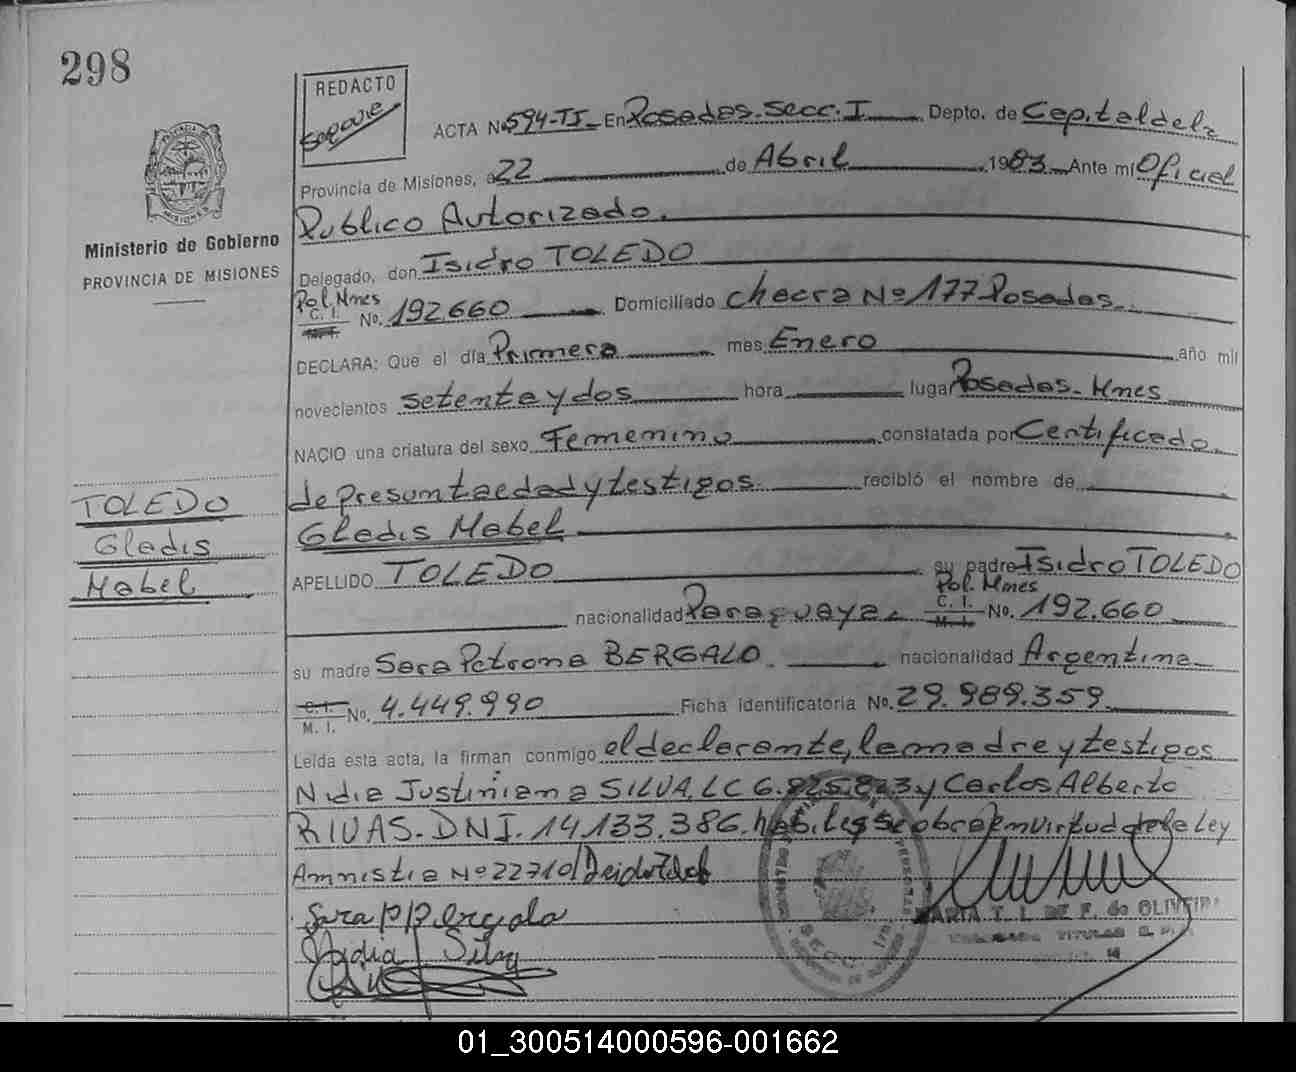 298
REDACTO
PROVINCIA DE
MISIONES
Ministerio de Gobierno
PROVINCIA DE MISIONES
ACTA Nº 594-TI- En Posadas. Secc. I Depto. de Capital de la
Provincia de Misiones, a 22 de Abril 1983 Ante mí Oficial
Publico Autorizado.
Delegado, don Isidro TOLEDO
Pol. Mnes
C. I.
M. I. No. 192.660 Domiciliado Chacra Nº 177 Posadas.
DECLARA: Que el día Primero mes Enero año mil
novecientos setenta y dos hora lugar Posadas. Mnes
NACIO una criatura del sexo Femenino constatada por Certificado
de presunta edad y testigos. recibió el nombre de
Gladis Mabel
TOLEDO
Gladis
Mabel
APELLIDO TOLEDO su padre Isidro TOLEDO
nacionalidad Paraguaya. Pol. Mnes C. I. M. I. No. 192.660
su madre Sara Petrona BERGALO. nacionalidad Argentina
C. I.
M. I. No. 4.449.990 Ficha identificatoria No. 29.989.359
Leída esta acta, la firman conmigo el declarante, la madre y testigos
Nidia Justiniana SILVA, LC 6.825.823 y Carlos Alberto
RIVAS. DNI. 14.133.386. hábiles se obra en virtud de la Ley
Amnistia Nº 22710/
Sara P
Nydia Silva
MARTA T. I. DE F. de OLIVEIRA
TITULAR
SECC. 1ra
01_300514000596-001662